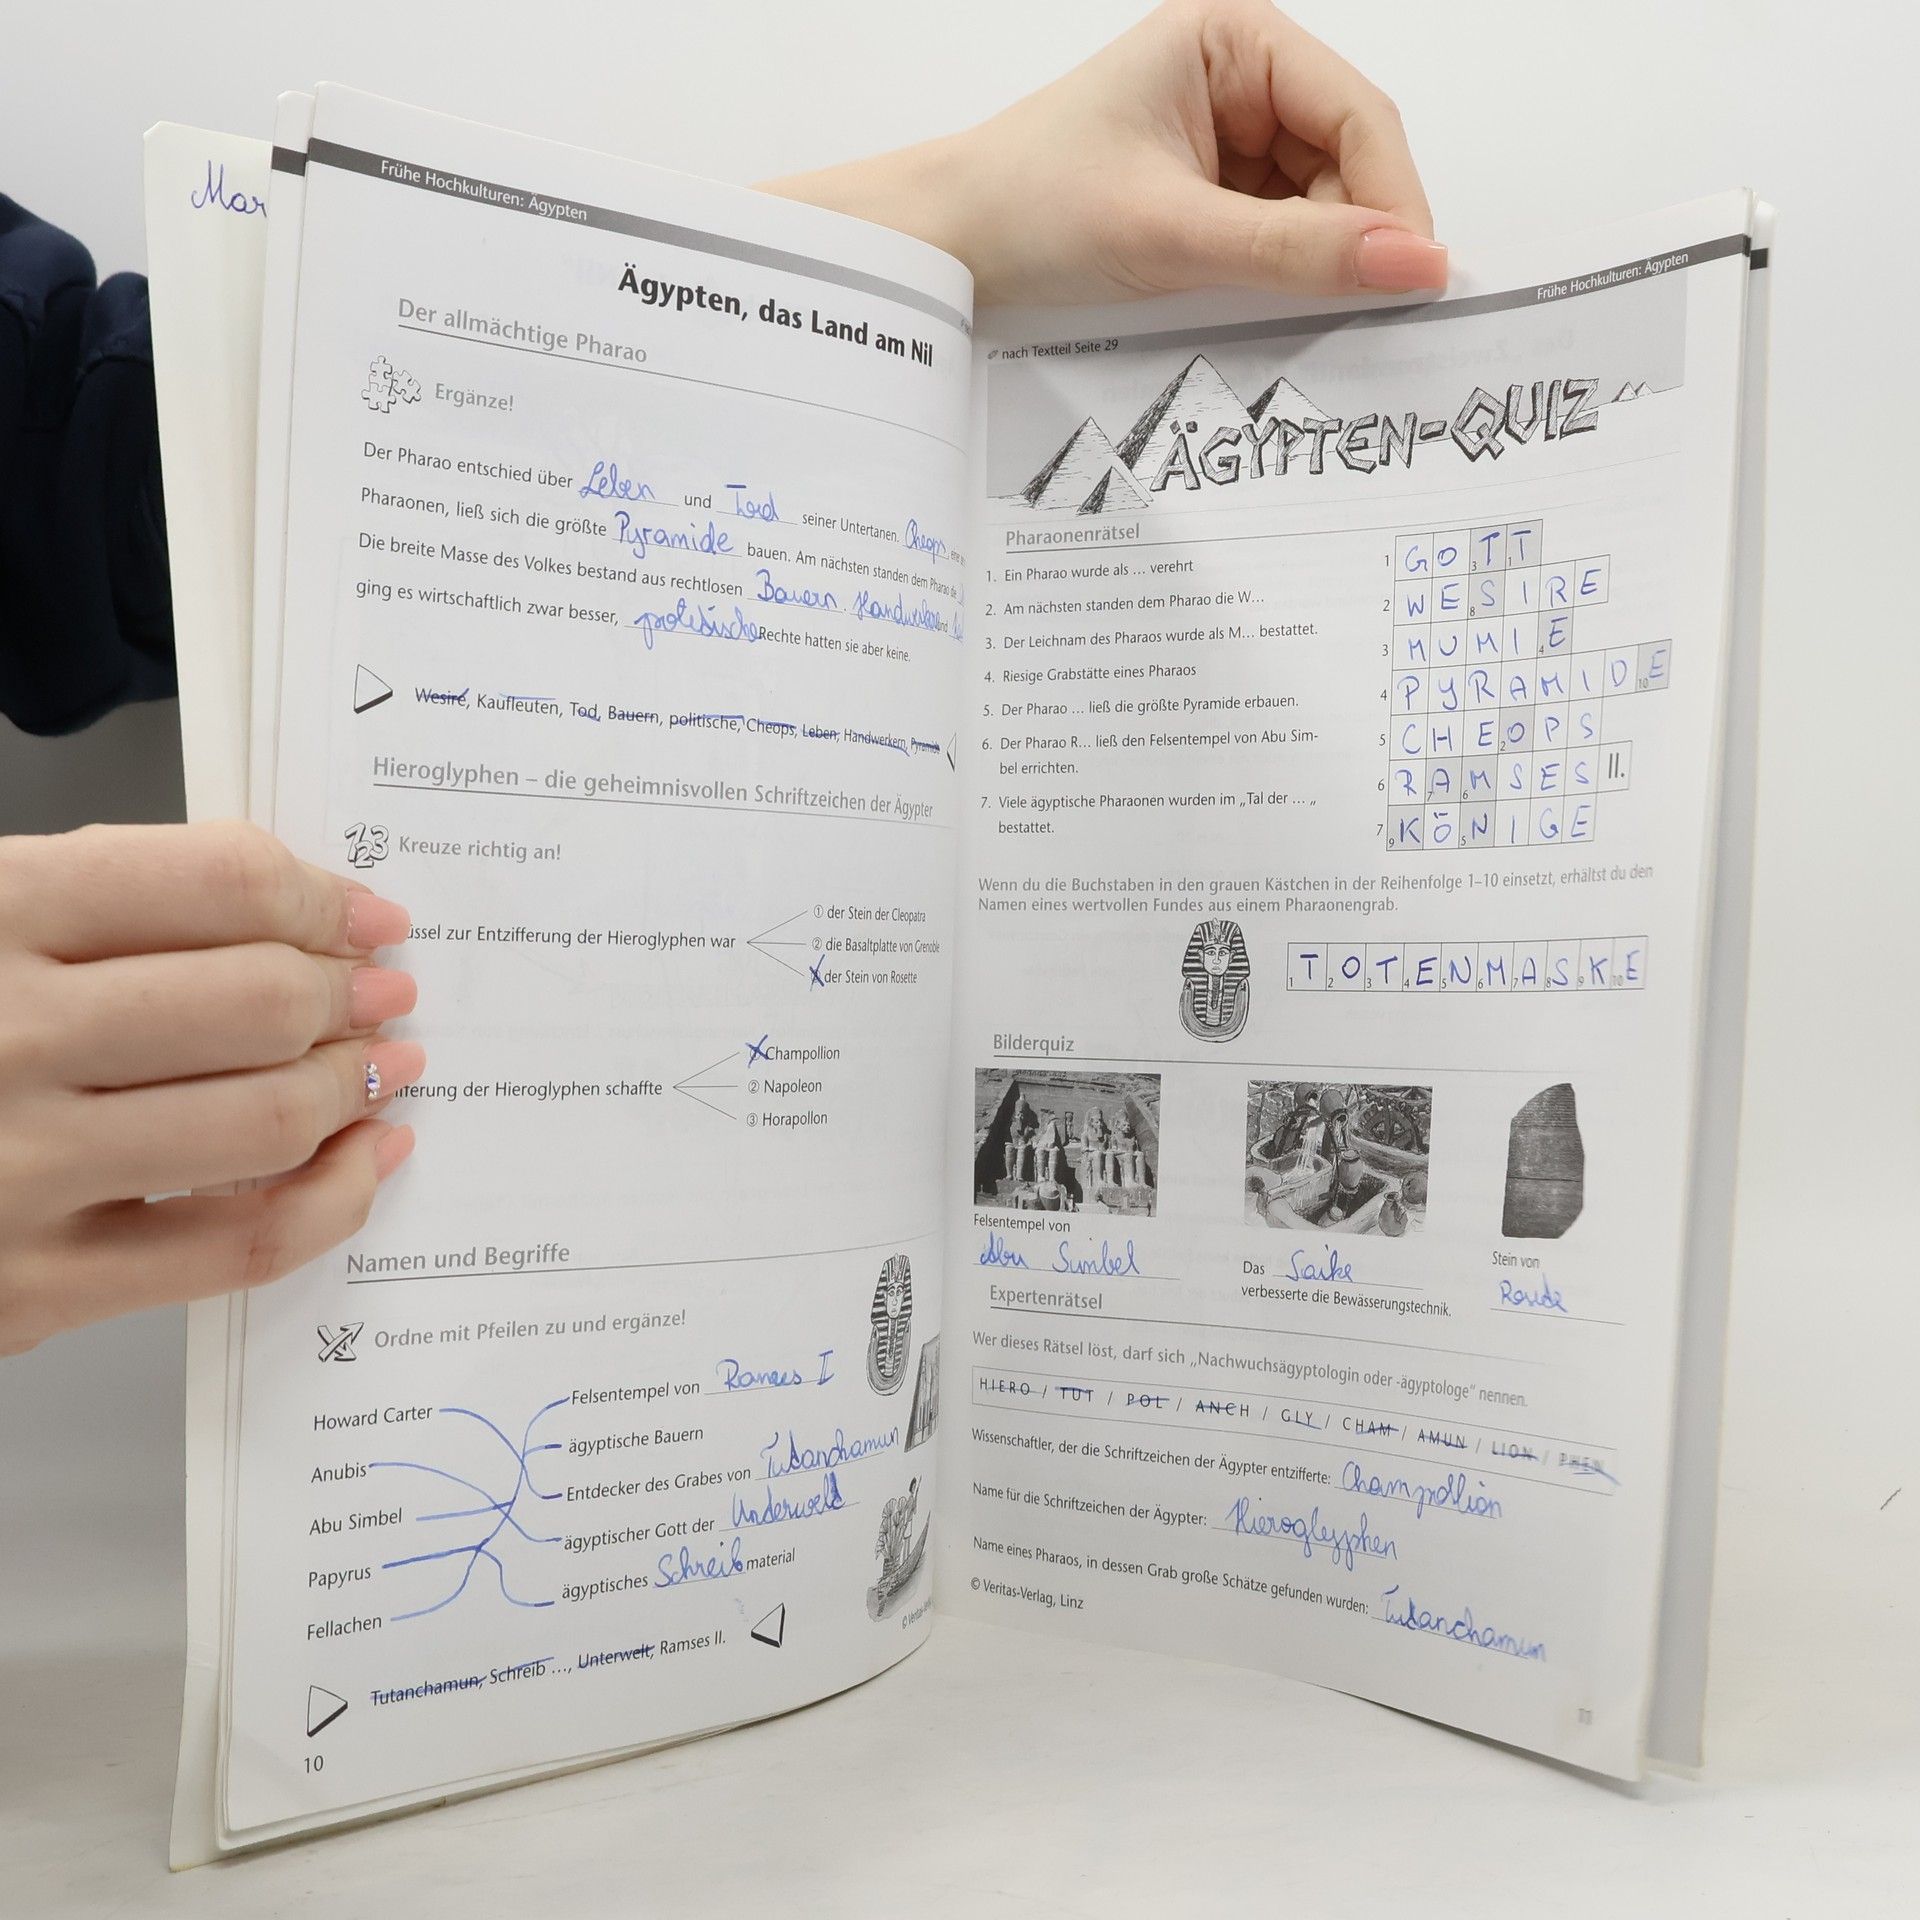 Mar
Frühe Hochkulturen: Ägypten
Ägypten, das Land am Nil
Der allmächtige Pharao
Ergänze!
Der Pharao entschied über Leben und Tod seiner Untertanen. Cheops
Pharaonen, ließ sich die größte Pyramide bauen. Am nächsten standen dem Pharao die
Die breite Masse des Volkes bestand aus rechtlosen Bauern. Handwerkern und
ging es wirtschaftlich zwar besser, politische Rechte hatten sie aber keine.
Wesire, Kaufleuten, Tod, Bauern, politische, Cheops, Leben, Handwerkern, Pyramide
Hieroglyphen – die geheimnisvollen Schriftzeichen der Ägypter
123 Kreuze richtig an!
üssel zur Entzifferung der Hieroglyphen war
① der Stein der Cleopatra
② die Basaltplatte von Grenoble
der Stein von Rosette
ifferung der Hieroglyphen schaffte
Champollion
② Napoleon
③ Horapollon
Namen und Begriffe
Ordne mit Pfeilen zu und ergänze!
Howard Carter
Anubis
Abu Simbel
Papyrus
Fellachen
Felsentempel von Ramses I
ägyptische Bauern
Entdecker des Grabes von Tutanchamun
ägyptischer Gott der Underwelt
ägyptisches Schreib material
Tutanchamun, Schreib ..., Unterwelt, Ramses II.
10
Frühe Hochkulturen: Ägypten
nach Textteil Seite 29
ÄGYPTEN-QUIZ
Pharaonenrätsel
1. Ein Pharao wurde als ... verehrt
2. Am nächsten standen dem Pharao die W...
3. Der Leichnam des Pharaos wurde als M... bestattet.
4. Riesige Grabstätte eines Pharaos
5. Der Pharao ... ließ die größte Pyramide erbauen.
6. Der Pharao R... ließ den Felsentempel von Abu Sim-
bel errichten.
7. Viele ägyptische Pharaonen wurden im „Tal der ... „
bestattet.
1 GOTT
2 WESIRE
3 MUMIE
4 PYRAMIDE
5 CHEOPS
6 RAMSES II.
7 KÖNIGE
Wenn du die Buchstaben in den grauen Kästchen in der Reihenfolge 1–10 einsetzt, erhältst du den
Namen eines wertvollen Fundes aus einem Pharaonengrab.
TOTENMASKE
Bilderquiz
Felsentempel von
Abu Simbel
Das Saike
verbesserte die Bewässerungstechnik.
Stein von
Expertenrätsel
Wer dieses Rätsel löst, darf sich „Nachwuchsägyptologin oder -ägyptologe“ nennen.
HIERO / TUT / POL / ANCH / GLY / CHAM / AMUN / LION / PHEN
Wissenschaftler, der die Schriftzeichen der Ägypter entzifferte: Champollion
Name für die Schriftzeichen der Ägypter: Hieroglyphen
Name eines Pharaos, in dessen Grab große Schätze gefunden wurden: Tutanchamun
© Veritas-Verlag, Linz
11